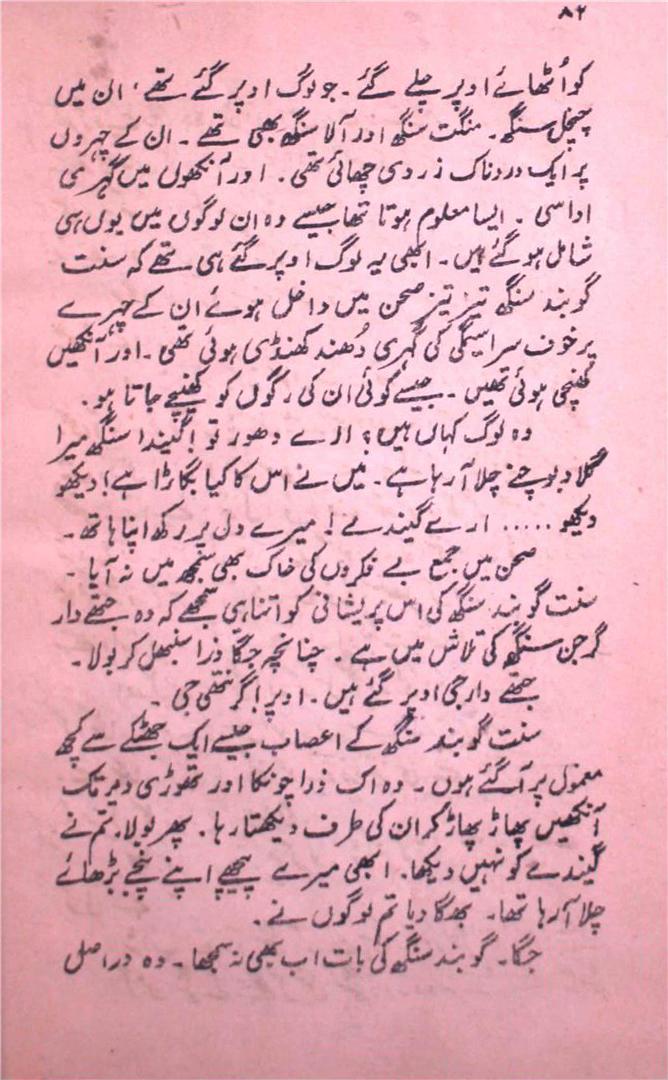 ۸۲
کو اُٹھائے اوپر چلے گئے۔ جو لوگ اوپر گئے تھے، ان میں
چنچل سنگھ۔ منگت سنگھ اور آلا سنگھ بھی تھے۔ ان کے چہروں
پر ایک دردناک زردی چھائی تھی۔ اور آنکھوں میں گہری
اداسی۔ ایسا معلوم ہوتا تھا جیسے وہ ان لوگوں میں یوں ہی
شامل ہو گئے ہیں۔ ابھی یہ لوگ اوپر گئے ہی تھے کہ سنت
گوبند سنگھ تیز تیز صحن میں داخل ہوئے ان کے چہرے
پر خوف سراسیمگی کی گہری دُھند کھنڈی ہوئی تھی۔ اور آنکھیں
کھنچی ہوئی تھیں۔ جیسے کوئی ان کی رگوں کو کھینچے جاتا ہو۔
وہ لوگ کہاں ہیں؟ ارے دھورتو! گیندا سنگھ میرا
گلا دبوچنے چلا آ رہا ہے۔ میں نے اس کا کیا بگاڑا ہے! دیکھو
دیکھو ..... ارے گیندے! میرے دل پر رکھ اپنا ہاتھ۔
صحن میں جمع بے فکروں کی خاک بھی سمجھ میں نہ آیا۔
سنت گوبند سنگھ کی اس پریشانی کو اتنا ہی سمجھے کہ وہ جتھے دار
گرجن سنگھ کی تلاش میں ہے۔ چنانچہ جگا ذرا سنبھل کر بولا۔
جتھے دار جی اوپر گئے ہیں۔ اوپر! گرنتھی جی۔
سنت گوبند سنگھ کے اعصاب جیسے ایک جھٹکے سے کچھ
معمول پر آ گئے ہوں۔ وہ اک ذرا چونکا اور تھوڑی دیر تک
آنکھیں پھاڑ پھاڑ کر ان کی طرف دیکھتا رہا۔ پھر بولا۔ تم نے
گیندے کو نہیں دیکھا۔ ابھی میرے پیچھے اپنے پنجے بڑھائے
چلا آ رہا تھا۔ بھگا دیا تم لوگوں نے۔
جگا۔ گوبند سنگھ کی بات اب بھی نہ سمجھا۔ وہ دراصل